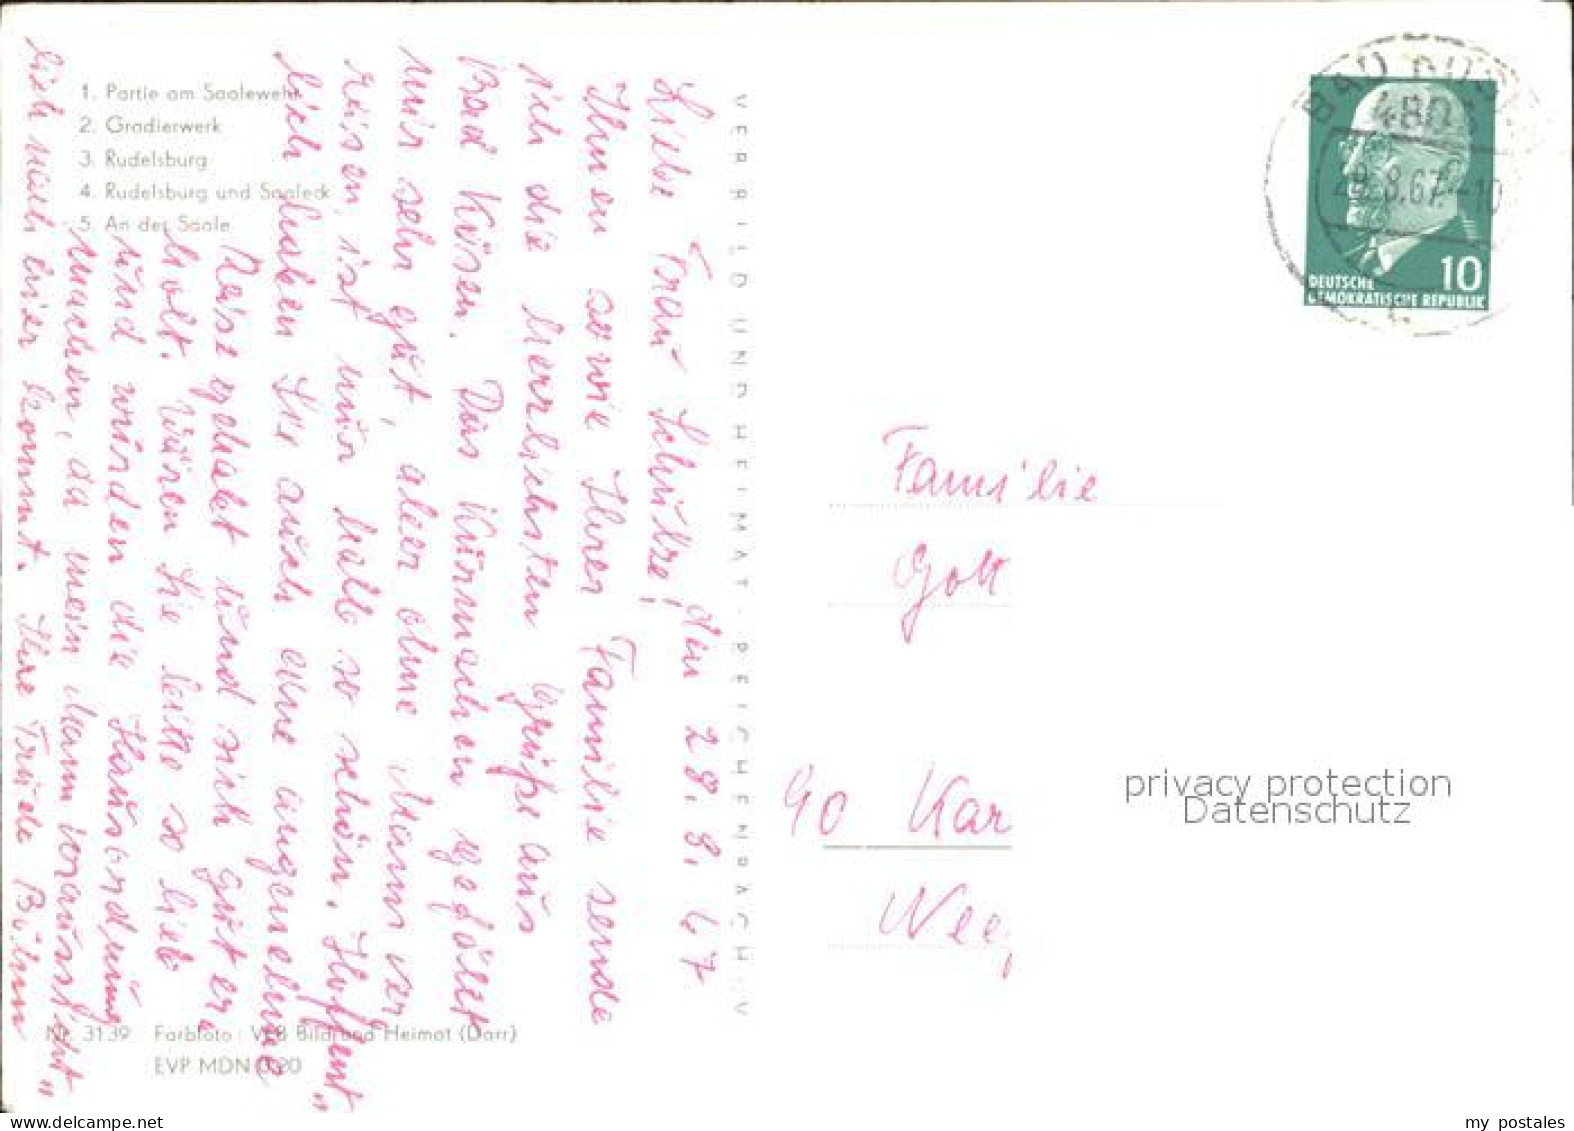 1. Partie am Saalewehr
2. Gradierwerk
3. Rudelsburg
4. Rudelsburg und Saaleck
5. An der Saale
Liebe Frau Schulze! den 28. 8. 67
Ihnen sowie Ihrer Familie sende
ich die herrlichsten Grüße aus
Bad Kösen. Das Kurmachen gefällt
mir sehr gut, aber ohne Mann ver
reisen, ist nur halb so schön. Hoffent„
lich haben Sie auch eine angenehme
Reise gehabt und sich gut er„
holt. Wären Sie bitte so lieb
und würden die Hausordnung
machen, da mein Mann voraussicht„
lich nach hier kommt. Ihre Trude
VEB BILD UND HEIMAT · REICHENBACH · V
Nr. 3139 Farbfoto: VEB Bild und Heimat (Darr)
EVP MDN 0,20
BAD
480
8.67.-10
10
DEUTSCHE
DEMOKRATISCHE REPUBLIK
Familie
Gott
90 Kar
Wee
privacy protection
Datenschutz
my postales